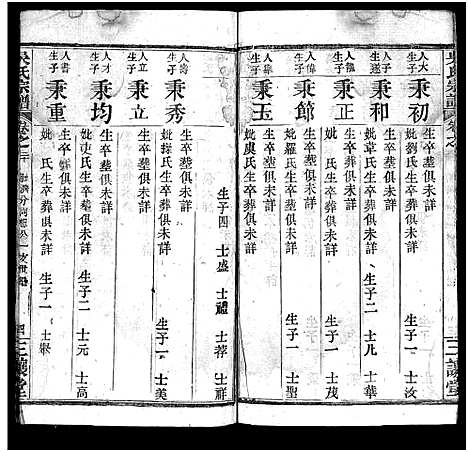 吳氏宗譜
秉初
生卒葬俱未詳
妣劉氏生卒葬俱未詳 生子一 士汝
秉和
生卒葬俱未詳
妣韋氏生卒葬俱未詳 生子二 士凡 士華
秉正
生卒葬俱未詳
妣 氏生卒葬俱未詳 生子一 士茂
秉節
生卒葬俱未詳
妣羅氏生卒葬俱未詳 生子一 士聖
秉玉
生卒葬俱未詳
妣虞氏生卒葬俱未詳
生子四 士盛 士禮 士荐 士祥
秉秀
生卒葬俱未詳
妣 氏生卒葬俱未詳 生子一 士美
秉立
生卒葬俱未詳
秉均
生卒葬俱未詳
妣 氏生卒葬俱未詳 生子二 士元 士高
秉重
生卒葬俱未詳
妣 氏生卒葬俱未詳 生子一
吳氏宗譜
三讓堂